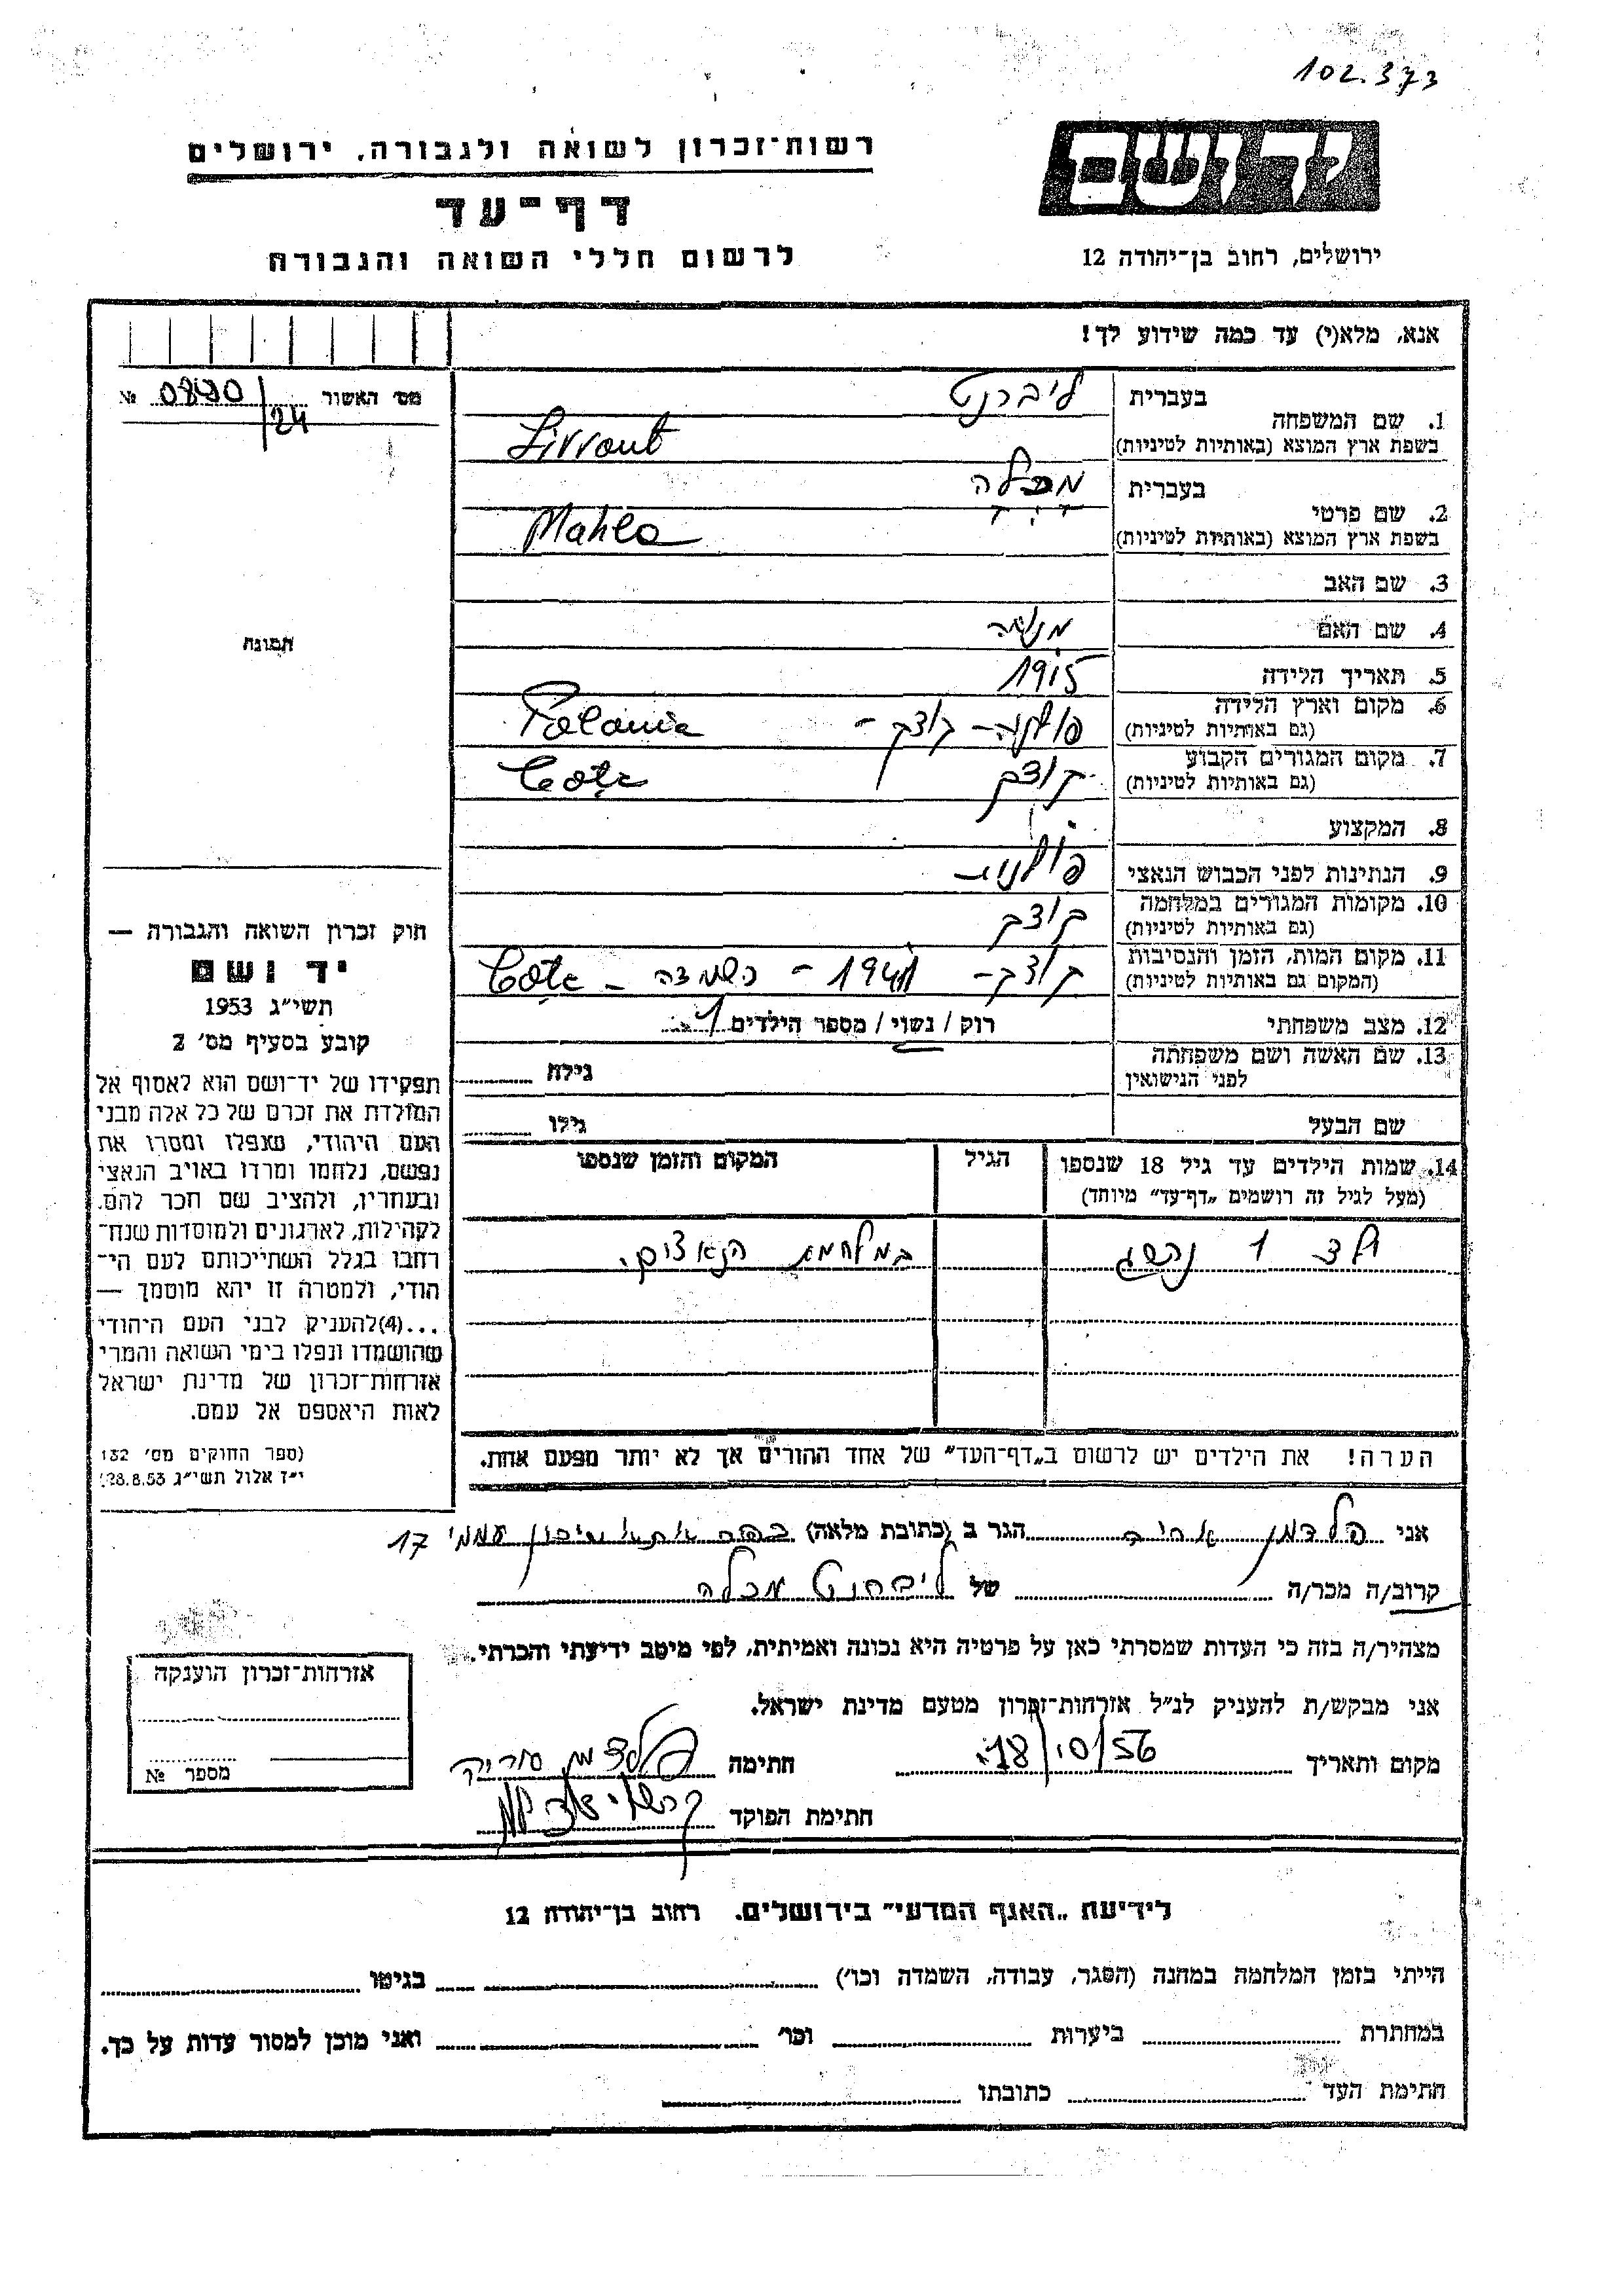 102.373
יד ושם
ירושלים, רחוב בן־יהודה 12
רשות־זכרון לשואה ולגבורה, ירושלים
דף־עד
לרשום חללי השואה והגבורה
אנא, מלא(י) עד כמה שידוע לך!
מס' האשור 0890/24 №
1. שם המשפחה בעברית ליברנט
בשפת ארץ המוצא (באותיות לטיניות) Livrant
2. שם פרטי בעברית מכלה
בשפת ארץ המוצא (באותיות לטיניות) Mahla
3. שם האב
4. שם האם
5. תאריך הלידה 1915
6. מקום וארץ הלידה פולניה - קוצק - Polania
(גם באותיות לטיניות)
7. מקום המגורים הקבוע קוצק
(גם באותיות לטיניות)
8. המקצוע
9. הנתינות לפני הכבוש הנאצי פולנית
10. מקומות המגורים במלחמה קוצק
(גם באותיות לטיניות)
11. מקום המות, הזמן והנסיבות קוצק - 1941 - השמדה -
(המקום גם באותיות לטיניות)
12. מצב משפחתי רוק / נשוי / מספר הילדים 1
13. שם האשה ושם משפחתה גילה
לפני הנישואין
שם הבעל גילו
14. שמות הילדים עד גיל 18 שנספו הגיל המקום והזמן שנספו
(מעל לגיל זה רושמים „דף־עד" מיוחד)
ילד 1 נהרג במלחמת הנאצים.
הערה! את הילדים יש לרשום ב„דף־העד" של אחד ההורים אך לא יותר מפעם אחת.
תמונה
חוק זכרון השואה והגבורה —
יד ושם
תשי"ג 1953
קובע בסעיף מס' 2
תפקידו של יד־ושם הוא לאסוף אל
המולדת את זכרם של כל אלה מבני
העם היהודי, שנפלו ומסרו את
נפשם, נלחמו ומרדו באויב הנאצי
ובעוזריו, ולהציב שם וזכר להם,
לקהילות, לארגונים ולמוסדות שנח־
רבו בגלל השתייכותם לעם הי־
הודי, ולמטרה זו יהא מוסמך —
...(4) להעניק לבני העם היהודי
שהושמדו ונפלו בימי השואה והמרי
אזרחות־זכרון של מדינת ישראל
לאות היאספם אל עמם.
(ספר החוקים מס' 132
י"ז אלול תשי"ג 28.8.53)
אני הלדמן הגר ב (כתובת מלאה) שיכון עממי 17
קרוב/ה מכר/ה של ליברנט מכלה
מצהיר/ה בזה כי העדות שמסרתי כאן על פרטיה היא נכונה ואמיתית, לפי מיטב ידיעתי והכרתי.
אני מבקש/ת להעניק לנ"ל אזרחות־זכרון מטעם מדינת ישראל.
מקום ותאריך 18/10/56 חתימה
חתימת הפוקד
אזרחות־זכרון הוענקה
מספר №
לידיעת „האגף המדעי" בירושלים. רחוב בן־יהודה 12
הייתי בזמן המלחמה במחנה (הסגר, עבודה, השמדה וכו') בגיטו
במחתרת ביערות וכו' ואני מוכן למסור עדות על כך.
חתימת העד כתובתו